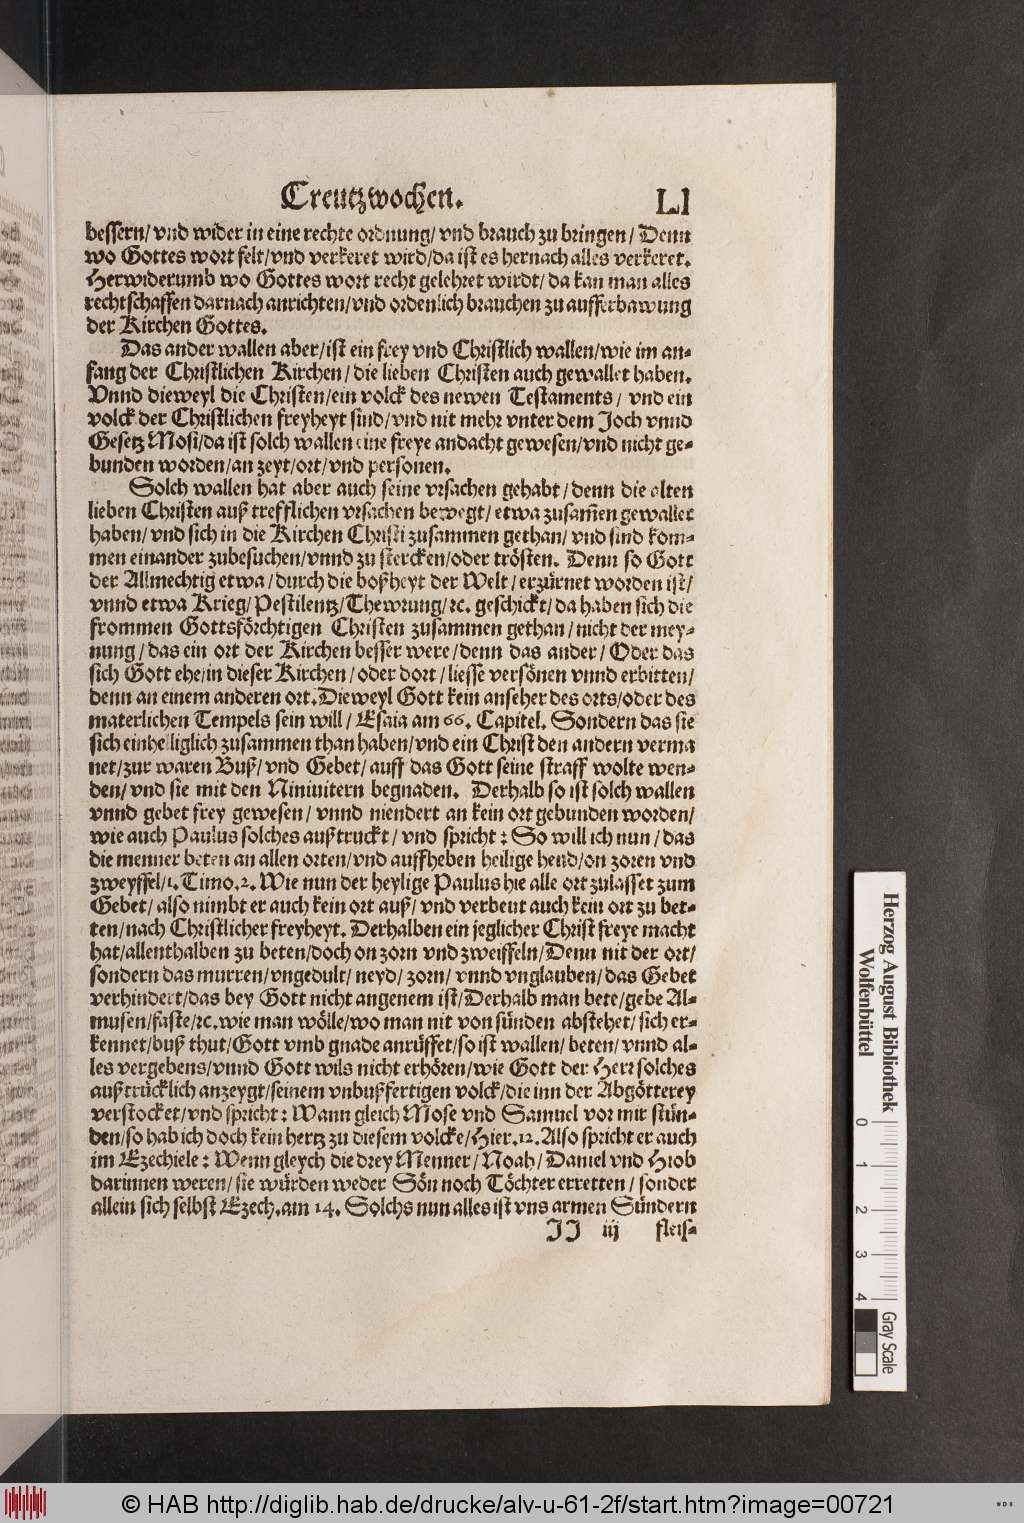 Creutzwochen. LI
bessern/ vnd wider in eine rechte ordnung/ vnd brauch zu bringen/ Denn
wo Gottes wort felt/ vnd verkeret wird/ da ist es hernach alles verkeret.
Herwiderumb wo Gottes wort recht gelehret wirdt/ da kan man alles
rechtschaffen darnach anrichten/ vnd ordenlich brauchen zu aufferbawung
der Kirchen Gottes.
Das ander wallen aber/ ist ein frey vnd Christlich wallen/ wie im an-
fang der Christlichen Kirchen/ die lieben Christen auch gewallet haben.
Vnnd dieweyl die Christen/ ein volck des newen Testaments/ vnd ein
volck der Christlichen freyheyt sind/ vnd nit mehr vnter dem Joch vnnd
Gesetz Mosi/ da ist solch wallen eine freye andacht gewesen/ vnd nicht ge-
bunden worden/ an zeyt/ ort/ vnd personen.
Solch wallen hat aber auch seine vrsachen gehabt/ denn die alten
lieben Christen auß trefflichen vrsachen bewegt/ etwa zusam̄en gewallet
haben/ vnd sich in die Kirchen Christi zusammen gethan/ vnd sind kom-
men einander zubesuchen/ vnnd zu stercken/ oder trösten. Denn so Gott
der Allmechtig etwa/ durch die boßheyt der Welt/ erzürnet worden ist/
vnnd etwa Krieg/ Pestilentz/ Thewrung/ ꝛc. geschickt/ da haben sich die
frommen Gottsförchtigen Christen zusammen gethan/ nicht der mey-
nung/ das ein ort der Kirchen besser were/ denn das ander/ Oder das
sich Gott ehe/ in dieser Kirchen/ oder dort/ liesse versönen vnnd erbitten/
denn an einem anderen ort. Dieweyl Gott kein anseher des orts/ oder des
materlichen Tempels sein will/ Esaia am 66. Capitel. Sondern das sie
sich einhelliglich zusammen than haben/ vnd ein Christ den andern verma
net/ zur waren Buß/ vnd Gebet/ auff das Gott seine straff wolte wen-
den/ vnd sie mit den Niniuitern begnaden. Derhalb so ist solch wallen
vnnd gebet frey gewesen/ vnnd niendert an kein ort gebunden worden/
wie auch Paulus solches außtruckt/ vnd spricht: So will ich nun/ das
die menner beten an allen orten/ vnd auffheben heilige hend/ on zoren vnd
zweyffel/ 1. Timo. 2. Wie nun der heylige Paulus hie alle ort zulasset zum
Gebet/ also nimbt er auch kein ort auß/ vnd verbeut auch kein ort zu bet-
ten/ nach Christlicher freyheyt. Derhalben ein jeglicher Christ freye macht
hat/ allenthalben zu beten/ doch on zorn vnd zweiffeln/ Denn nit der ort/
sondern das murren/ vngedult/ neyd/ zorn/ vnnd vnglauben/ das Gebet
verhindert/ das bey Gott nicht angenem ist/ Derhalb man bete/ gebe Al-
musen/ faste/ ꝛc. wie man wölle/ wo man nit von sünden abstehet/ sich er-
kennet/ buß thut/ Gott vmb gnade anrüffet/ so ist wallen/ beten/ vnnd al-
les vergebens/ vnnd Gott wils nicht erhören/ wie Gott der Herr solches
außtrücklich anzeygt/ seinem vnbußfertigen volck/ die inn der Abgötterey
verstocket/ vnd spricht: Wann gleich Mose vnd Samuel vor mir stün-
den/ so hab ich doch kein hertz zu diesem volcke/ Hier. 12. Also spricht er auch
im Ezechiele: Wenn gleych die drey Menner/ Noah/ Daniel vnd Hiob
darinnen weren/ sie würden weder Sön noch Töchter erretten/ sonder
allein sich selbst Ezech. am 14. Solchs nun alles ist vns armen Sündern
JJ iij fleis-
Herzog August Bibliothek
Wolfenbüttel
0 1 2 3 4
Gray Scale
© HAB http://diglib.hab.de/drucke/alv-u-61-2f/start.htm?image=00721